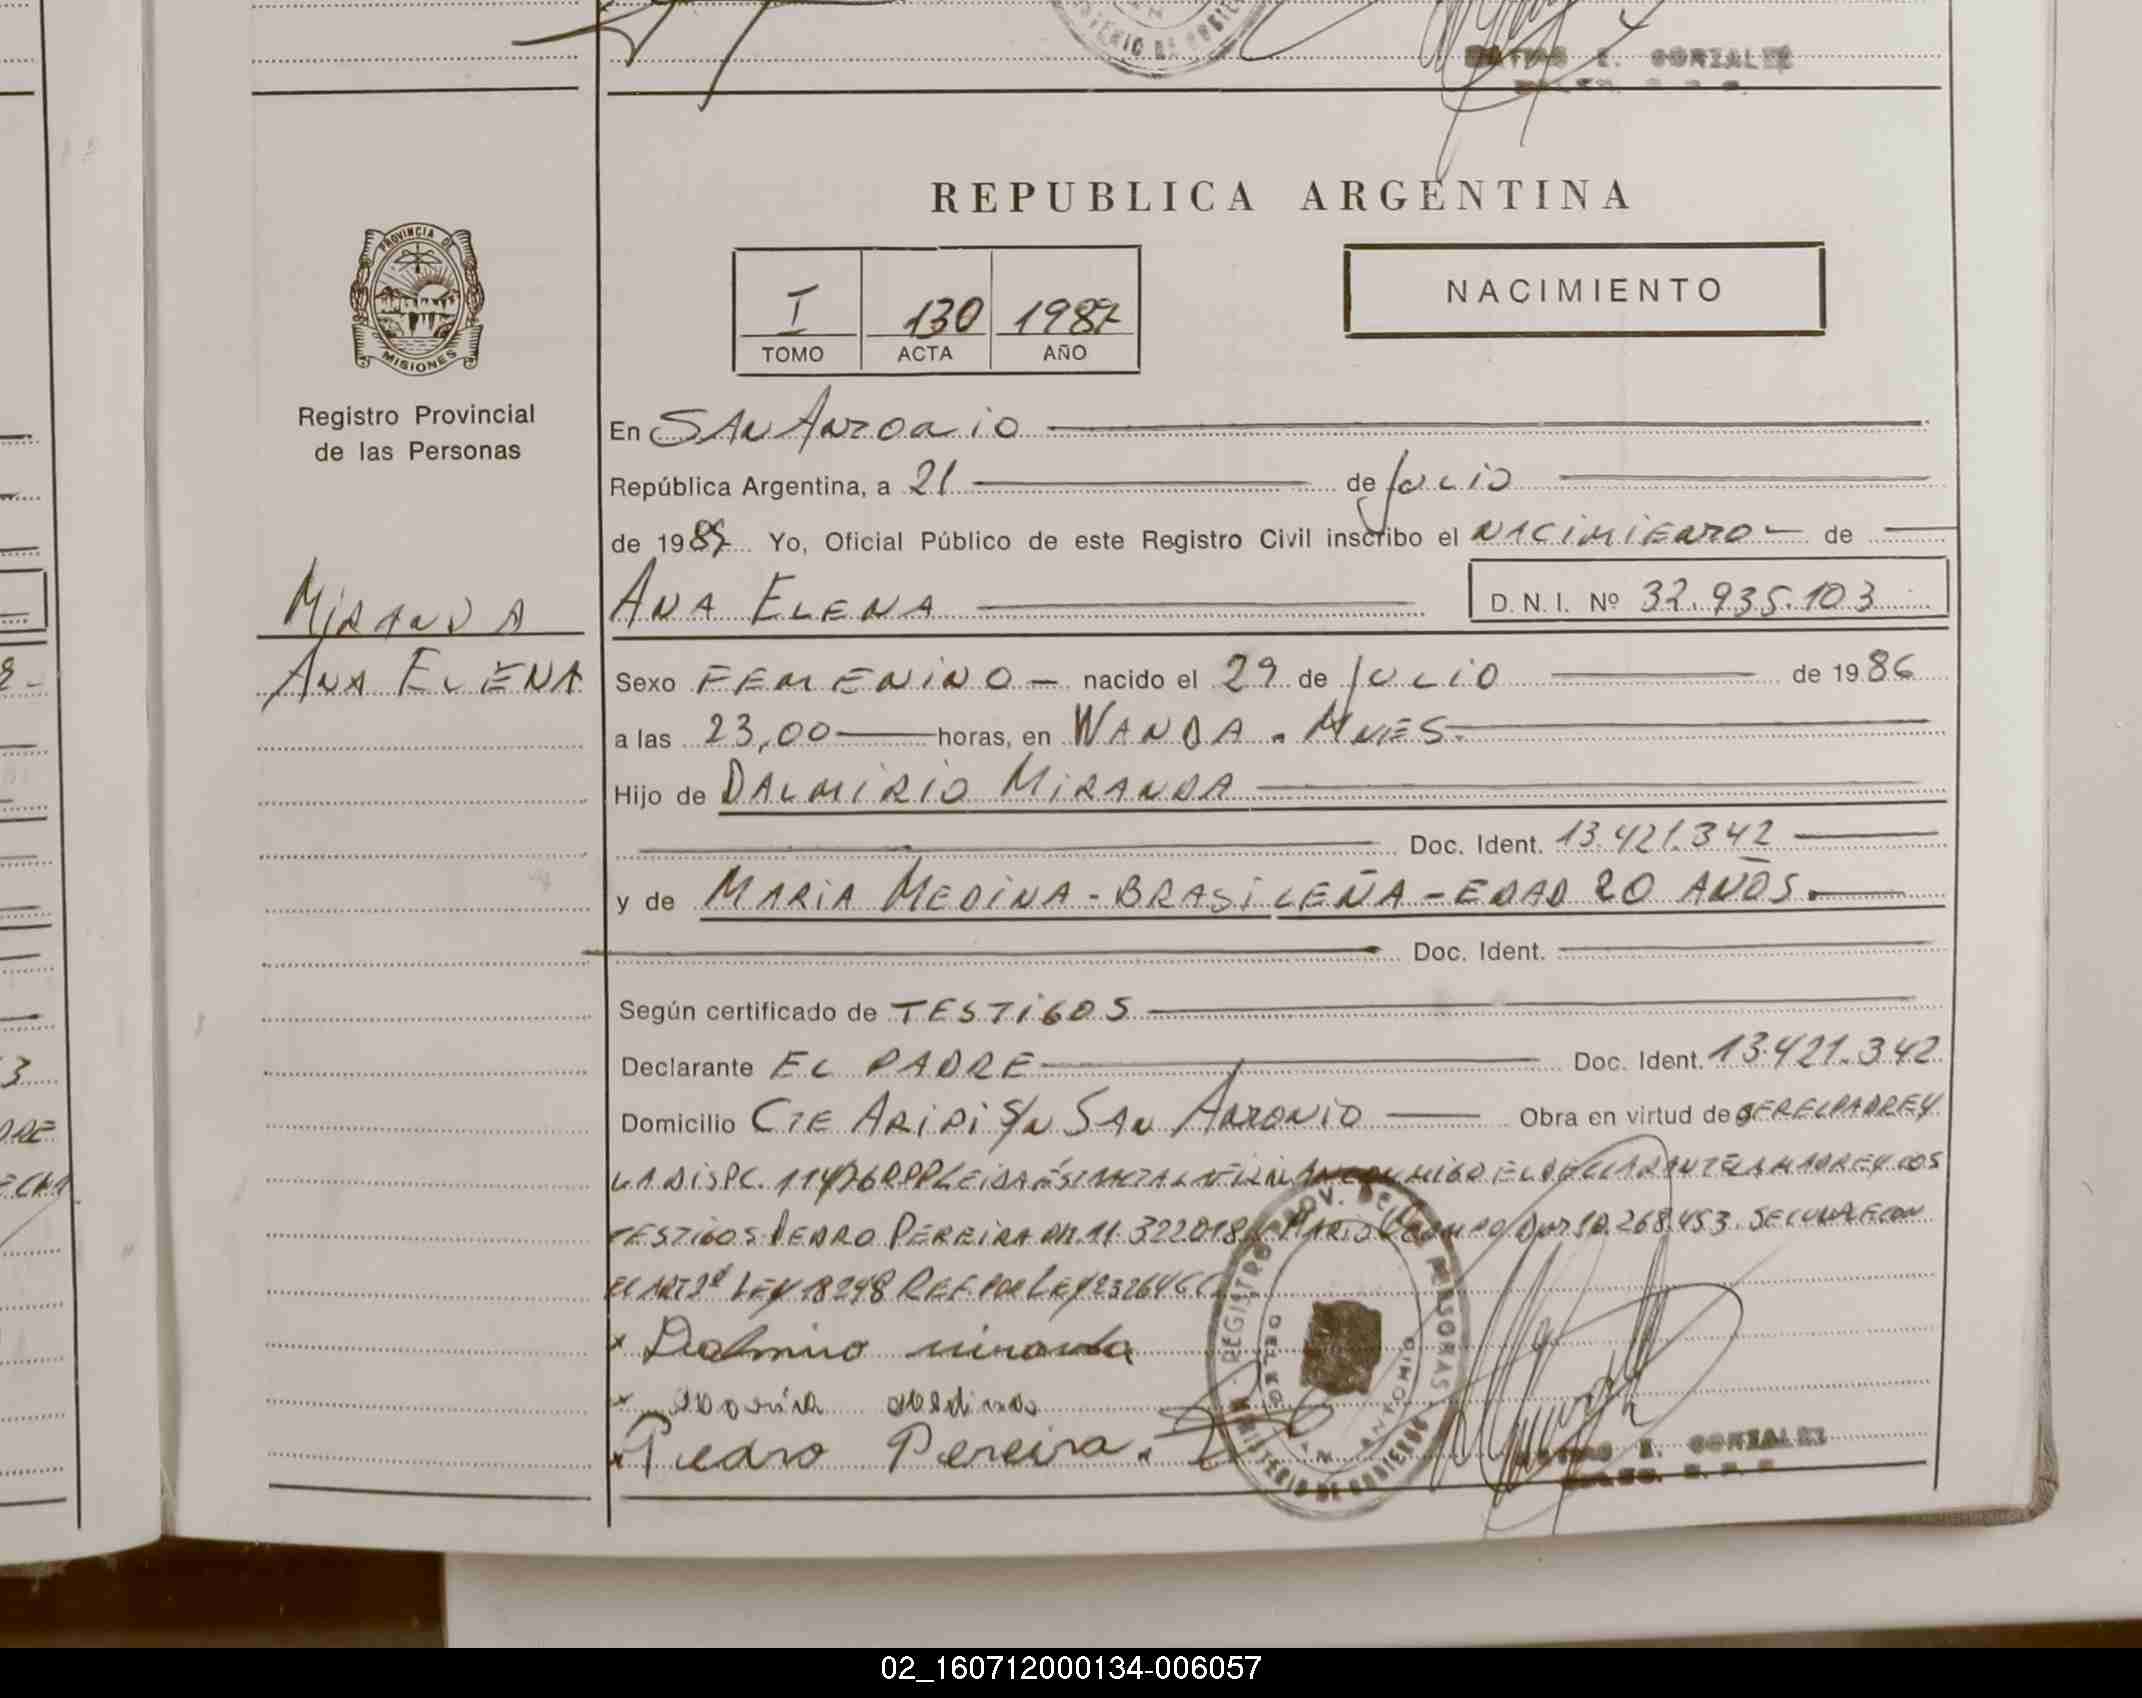 MATIAS E. GONZALEZ
REPUBLICA ARGENTINA
PROVINCIA DE
MISIONES
Registro Provincial
de las Personas
I 130 1987
TOMO ACTA AÑO
NACIMIENTO
En SAN ANTONIO
República Argentina, a 21 de JULIO
de 1987 Yo, Oficial Público de este Registro Civil inscribo el NACIMIENTO — de
MIRANDA
ANA ELENA
ANA ELENA
D.N.I. Nº 32.935.103
Sexo FEMENINO — nacido el 29 de JULIO de 1986
a las 23,00 horas, en WANDA. MNES.
Hijo de DALMIRIO MIRANDA
Doc. Ident. 13.421.342
y de MARIA MEDINA - BRASILEÑA - EDAD 20 AÑOS.
Doc. Ident.
Según certificado de TESTIGOS
Declarante EL PADRE Doc. Ident. 13.421.342
Domicilio CTE ARIPI S/N SAN ANTONIO Obra en virtud de SER EL PADRE Y
LA DISPC. 114/76 RPP LEIDA ÉSTA ACTA FIRMAN CONMIGO EL DECLARANTE LA MADRE Y LOS
TESTIGOS PEDRO PEREIRA DNI. 11.322018 Y MARIO DNI 10.268.453. SE CON
EL ART 2º LEY 18248 REF. POR LEY 23264
x Dalmirio miranda
x maria medina
x Pedro Pereira.
REGISTRO PROV. DE LAS PERSONAS
MINISTERIO DE GOBIERNO
SAN ANTONIO
MATIAS E. GONZALEZ
02_160712000134-006057